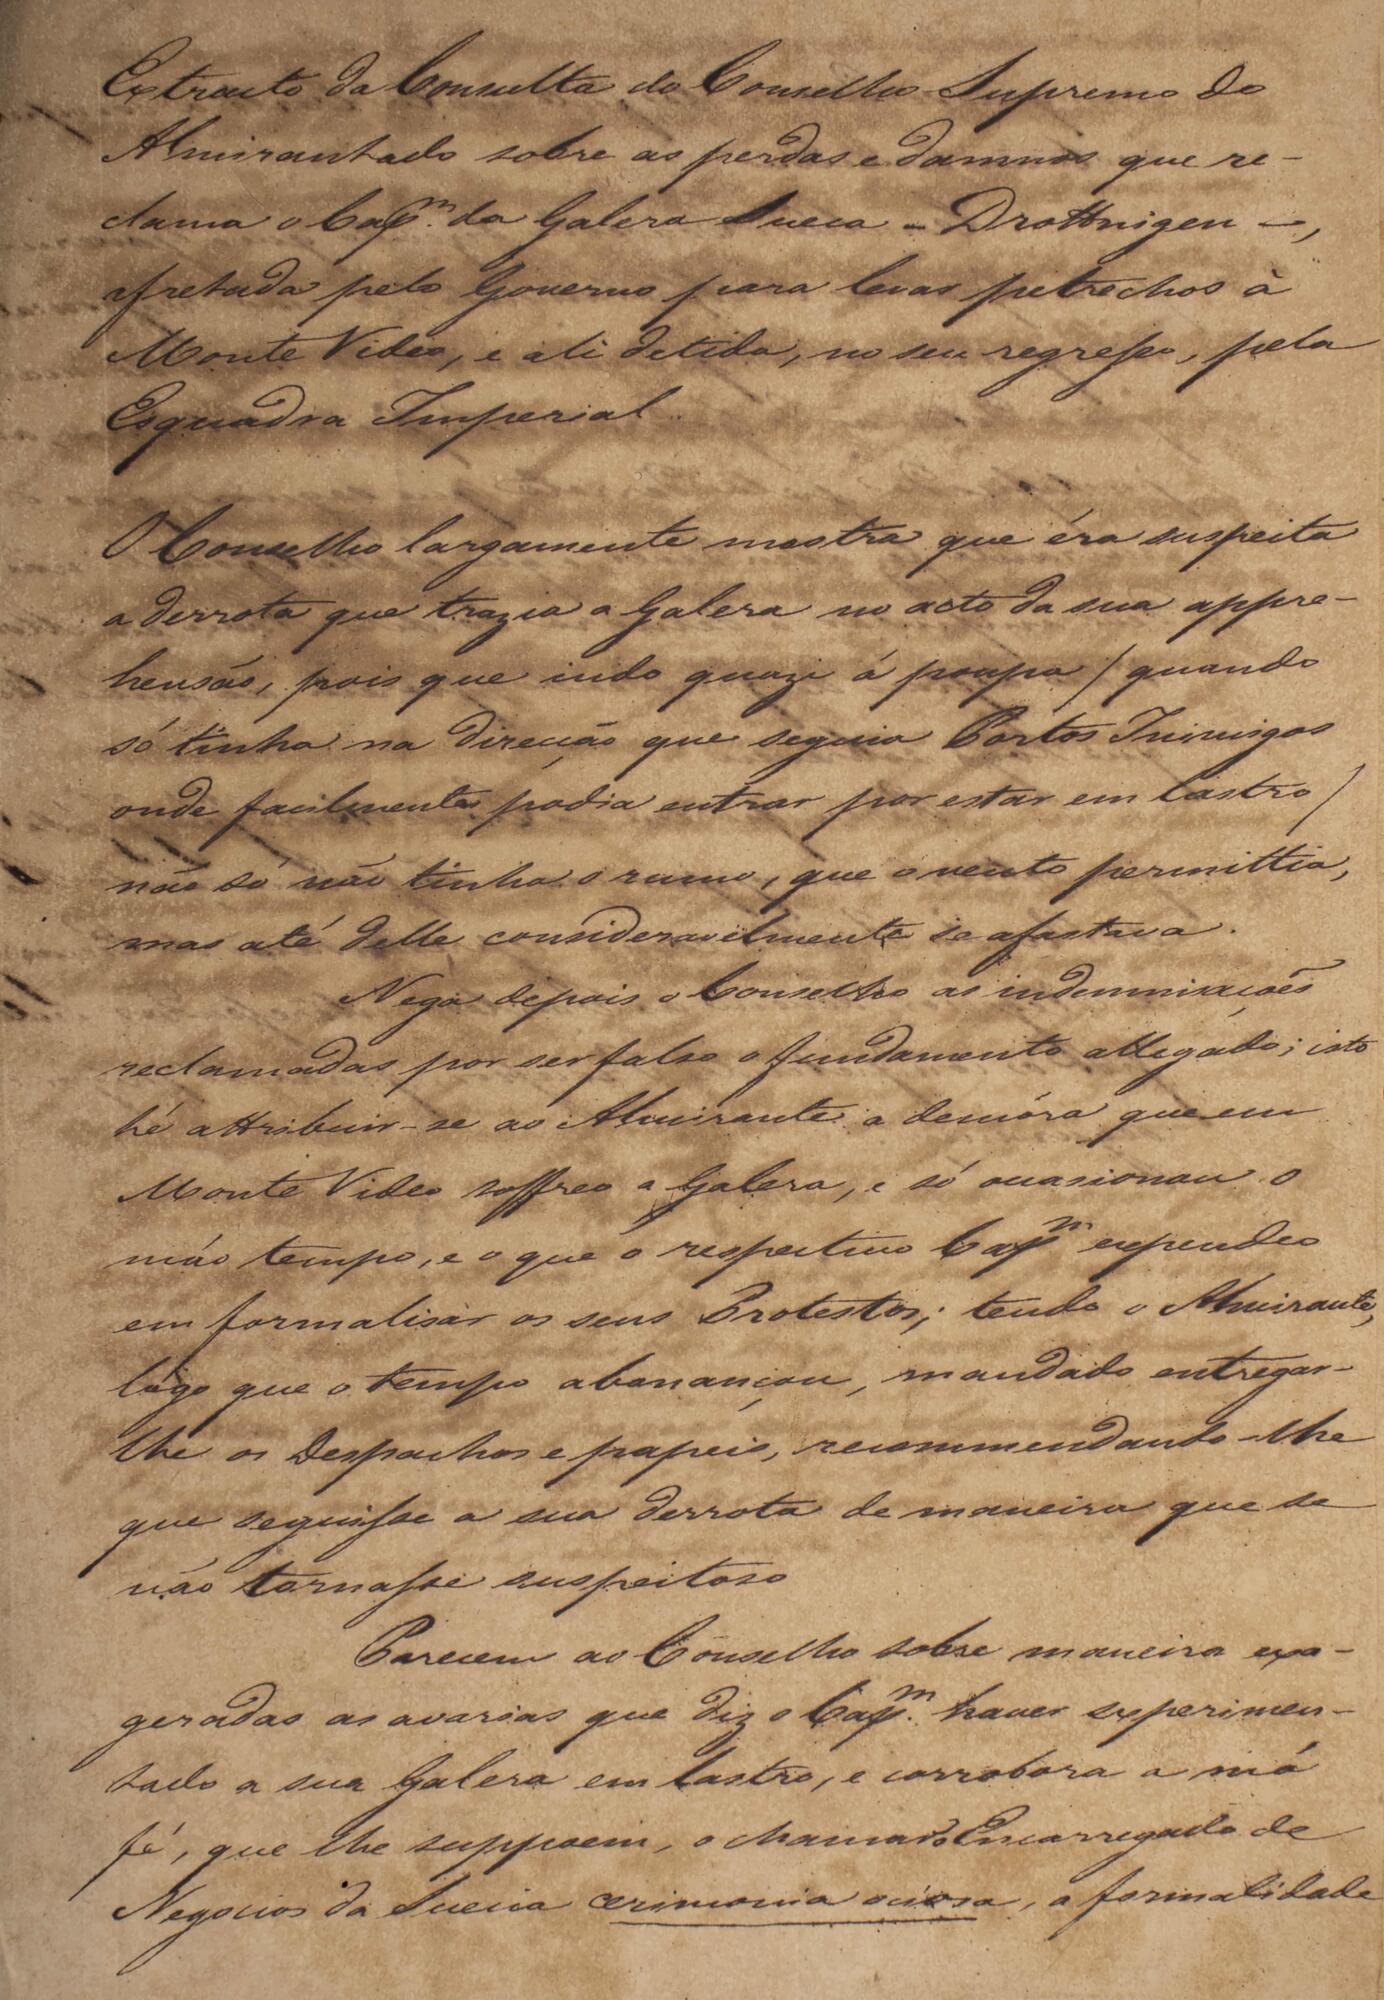 Extracto da Consulta do Conselho Supremo do
Almirantado sobre as perdas e damnos que re-
clama o Capm. da Galera Sueca - Drottnigen -,
afretada pelo Governo para levar petrechos à
Monte Video, e ali detida, no seu regresso, pela
Esquadra Imperial.
O Conselho largamente mostra que éra suspeita
a derrota que trazia a Galera no acto da sua appre-
hensão, pois que indo quazi á poupa / quando
só tinha na direcção que seguia Portos Inimigos
onde facilmente podia entrar por estar em lastro /
não só não tinha o rumo, que o vento permittia,
mas até delle consideravelmente se afastava.
Nega depois o Conselho as indemnisações
reclamadas por ser falso o fundamento allegado; isto
hé attribuir-se ao Almirante a demóra que em
Monte Video soffreo a Galera, e só occasionau o
máo tempo, e o que o respectivo Capm expendeo
em formalisar os seus Protestos; tendo o Almirante,
lógo que o tempo abonançou, mandado entregar-
lhe os Despachos e papeis, recommendando-lhe
que seguisse a sua derrota de maneira que se
não tornasse suspeitoso
Parecem ao Conselho sobre maneira exa-
geradas as avarias que diz o Capm. haver experimen-
tado a sua Galera em lastro, e corrobora a má
fé, que lhe suppoem, o chamar o Encarregado de
Negocios da Suecia cerimonia ociosa, a formalidade